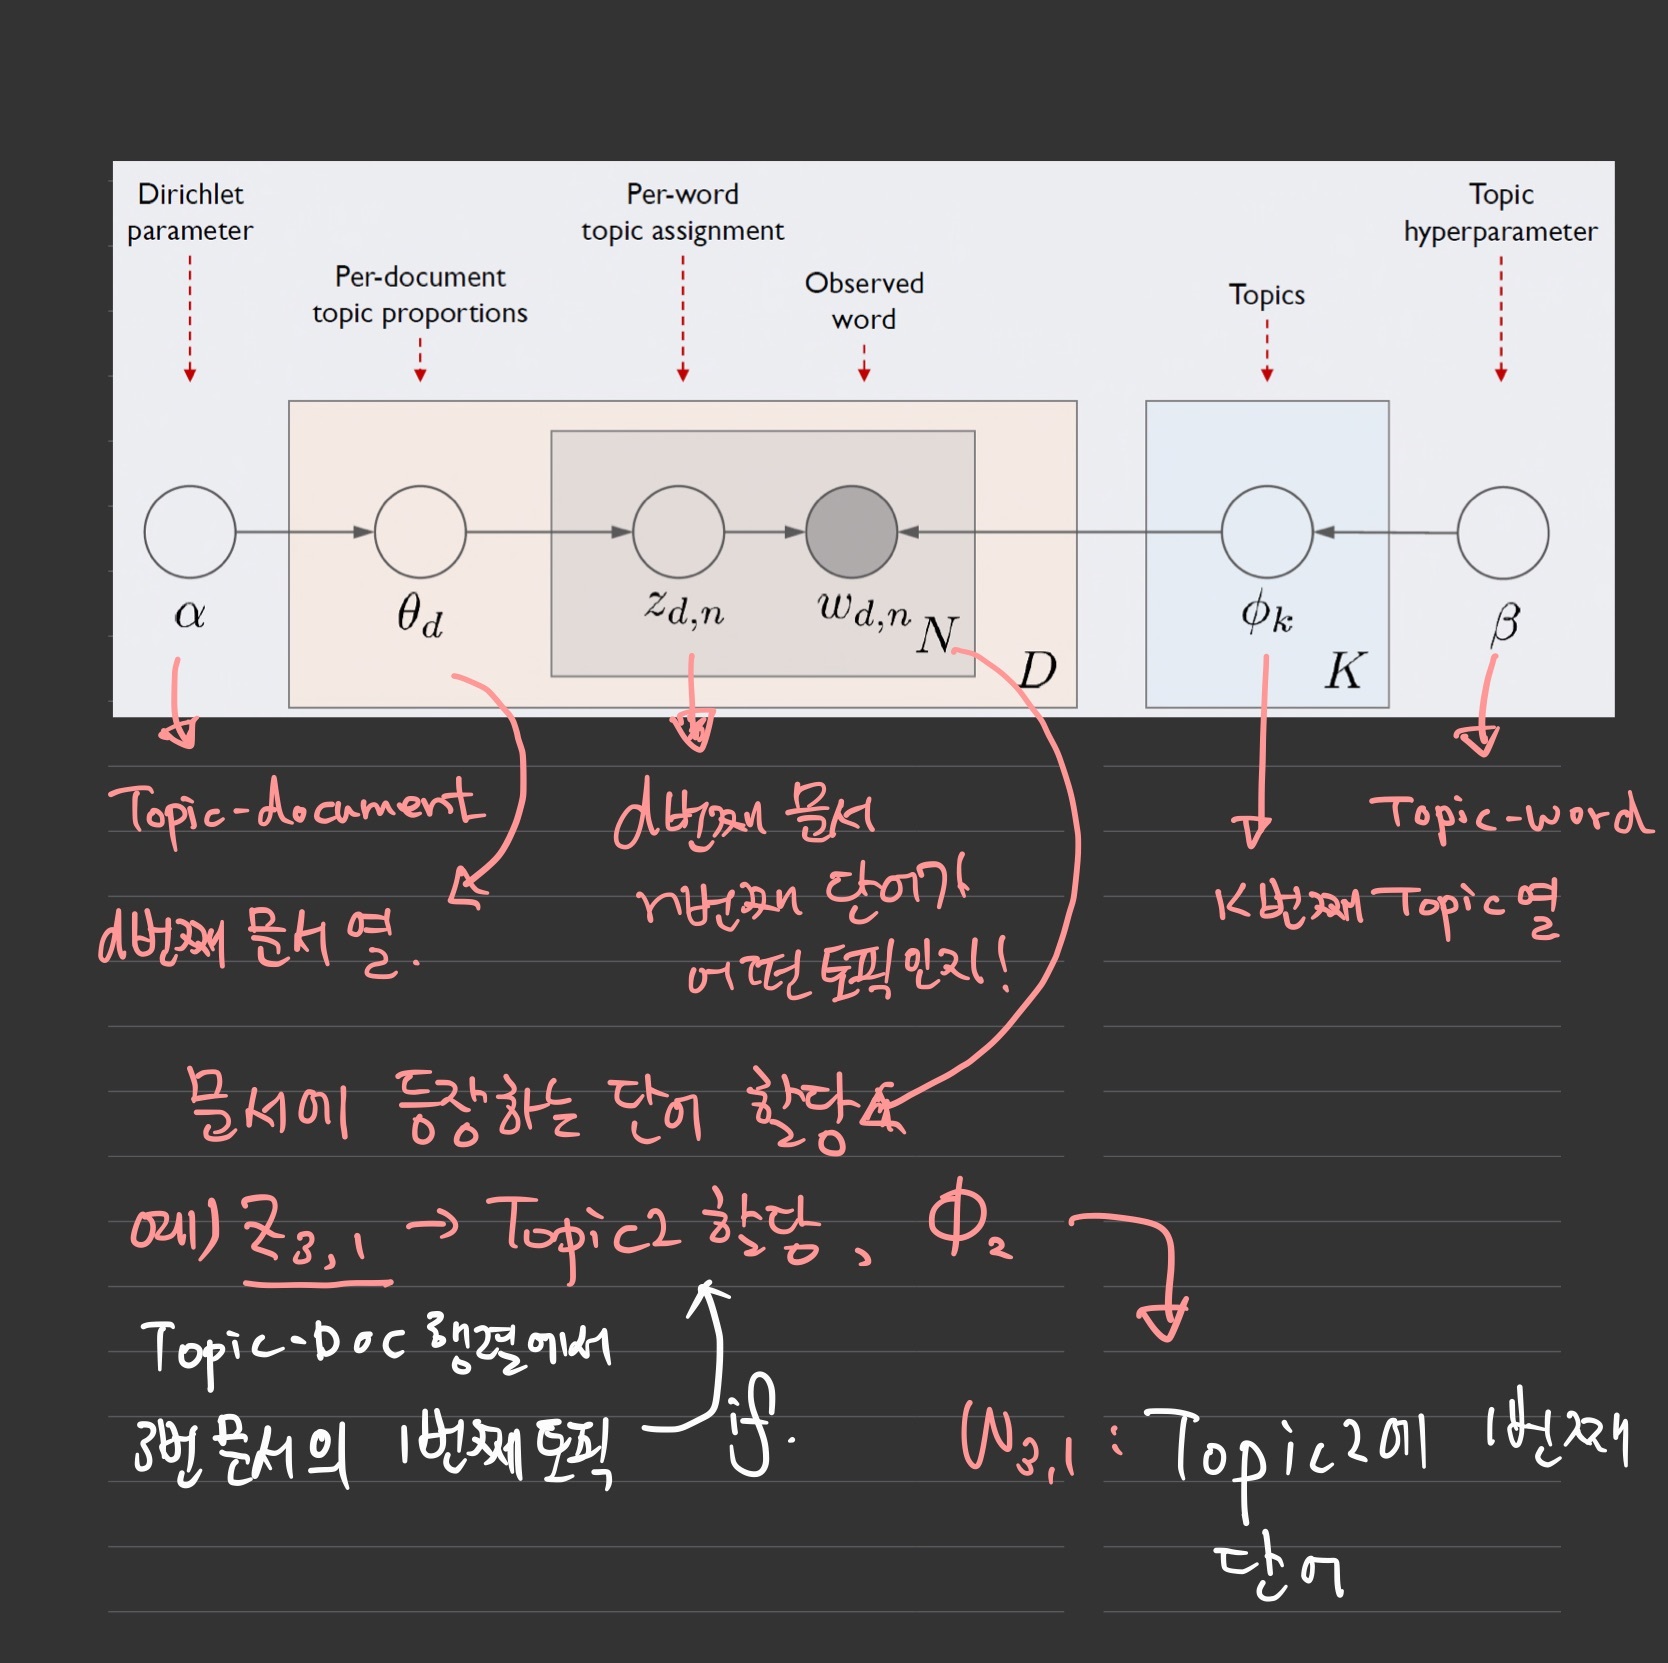 Dirichlet
parameter
Per-document
topic proportions
Per-word
topic assignment
Observed
word
Topics
Topic
hyperparameter
α
θd
zd,n
wd,n
N
D
ϕk
K
β
Topic-document
d번째 문서 열.
d번째 문서
n번째 단어가
어떤 토픽인지!
K번째 Topic 열
Topic-word
문서에 등장하는 단어 할당
예) Z3,1 → Topic2 할당, Φ2
Topic-Doc 행렬에서
3번 문서의 1번째 토픽
if.
W3,1 : Topic2에 1번째
단어